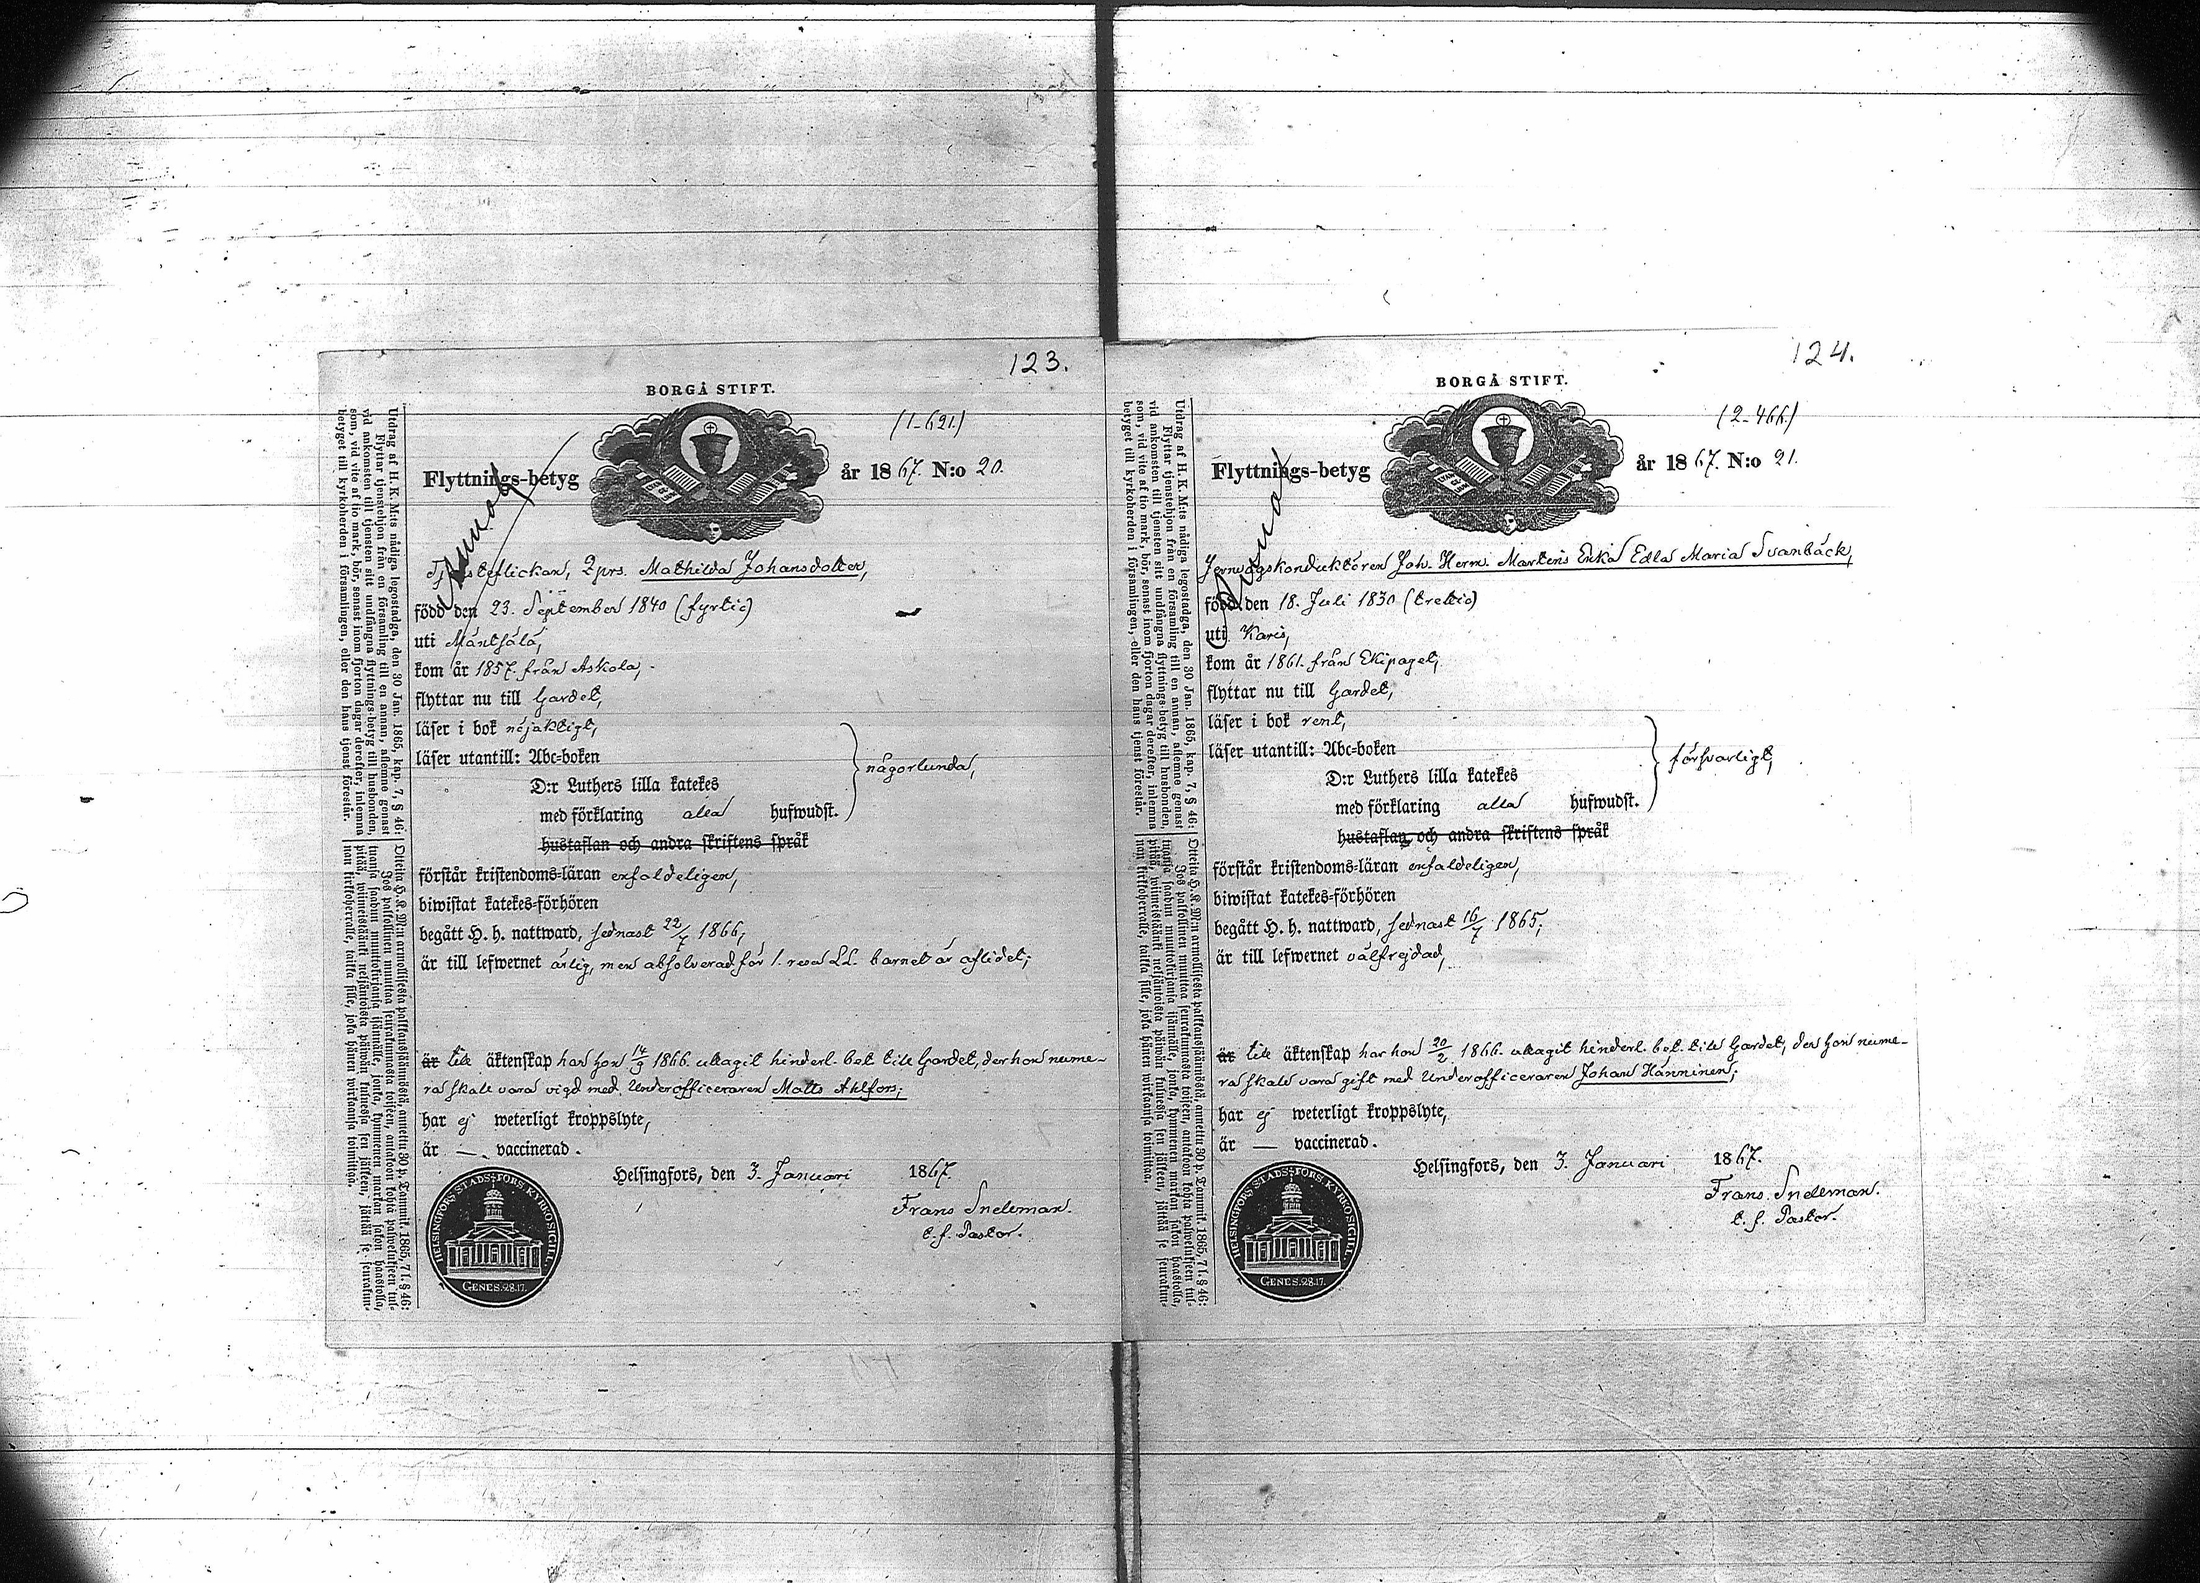 123.
BORGÅ STIFT.
(1-621.)
Flyttnings-betyg år 1867. N:o 20.
Tjensteflickan, 2prs. Mathilda Johansdotter,
född den 23. September 1840 (fyrtio)
uti Mäntsälä,
kom år 1857. från Askola,
flyttar nu till Gardet,
läser i bok nöjaktigt,
läser utantill: Abc-boken
D:r Luthers lilla katekes
med förklaring alla hufwudst.
någorlunda,
hustaflan och andra skriftens språk
förstår kristendoms-läran enfaldeligen,
biwistat katekes-förhören
begått H. h. nattward, sednast 22/7 1866,
är till lefwernet ärlig, men absolverad för 1. resa LL. barnet är aflidet;
är till äktenskap har hon 14/9 1866. uttagit hinderl. bet till Gardet, der hon nume-
ra skall vara vigd med Underofficeraren Matts Ahlfors;
har ej weterligt kroppslyte,
är —. vaccinerad.
Helsingfors, den 3. Januari 1867.
Frans Snelman.
t. f. Pastor.
HELSINGFORS STADS FÖRS. KYRKOSIGILL.
GENES. 28.17.
Utdrag af H. K. M:ts nådiga legostadga, den 30 Jan. 1865, kap. 7, § 46:
Flyttar tjenstehjon från en församling till en annan, aflemne genast
vid ankomsten till tjensten sitt undfångna flyttnings-betyg till husbonden,
som, vid vite af tio mark, bör, senast inom fjorton dagar derefter, inlemna
betyget till kyrkoherden i församlingen, eller den hans tjenst förestår.
Otteita H. K. M:n armollisesta palkkaussäännöstä, annettu 30 p. Tammik. 1865, 7 l. § 46:
Jos palkollinen muuttaa seurakunnasta toiseen, antakoon kohta palwelukseen tul-
tuansa saadun muuttokirjansa isännälle, jonka, kymmenen markan sakon haastolla,
pitää, wiimeistäänki neljäntoista päiwän kuluessa sen jälkeen, jättää se seurakun-
nan kirkkoherralle, taikka sille, joka hänen wirkaansa toimittaa.
124.
BORGÅ STIFT.
(2-466.)
Flyttnings-betyg år 1867. N:o 21.
Jernvägskonduktören Joh. Herm. Martens Enka Edla Maria Svanbäck,
född den 18. Juli 1830 (trettio)
uti Karis,
kom år 1861. från Ekipaget,
flyttar nu till Gardet,
läser i bok rent,
läser utantill: Abc-boken
D:r Luthers lilla katekes
med förklaring alla hufwudst.
försvarligt,
hustaflan och andra skriftens språk
förstår kristendoms-läran enfaldeligen,
biwistat katekes-förhören
begått H. h. nattward, sednast 16/7 1865;
är till lefwernet välfrejdad,
är till äktenskap har hon 20/2 1866. uttagit hinderl. bet. till Gardet, der hon nume-
ra skall vara gift med Underofficeraren Johan Hänninen;
har ej weterligt kroppslyte,
är — vaccinerad.
Helsingfors, den 3. Januari 1867.
Frans Snelman.
t. f. Pastor.
HELSINGFORS STADS FÖRS. KYRKOSIGILL.
GENES. 28.17.
Utdrag af H. K. M:ts nådiga legostadga, den 30 Jan. 1865, kap. 7, § 46:
Flyttar tjenstehjon från en församling till en annan, aflemne genast
vid ankomsten till tjensten sitt undfångna flyttnings-betyg till husbonden,
som, vid vite af tio mark, bör, senast inom fjorton dagar derefter, inlemna
betyget till kyrkoherden i församlingen, eller den hans tjenst förestår.
Otteita H. K. M:n armollisesta palkkaussäännöstä, annettu 30 p. Tammik. 1865, 7 l. § 46:
Jos palkollinen muuttaa seurakunnasta toiseen, antakoon kohta palwelukseen tul-
tuansa saadun muuttokirjansa isännälle, jonka, kymmenen markan sakon haastolla,
pitää, wiimeistäänki neljäntoista päiwän kuluessa sen jälkeen, jättää se seurakun-
nan kirkkoherralle, taikka sille, joka hänen wirkaansa toimittaa.